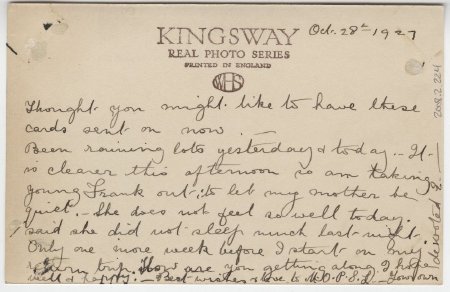 KINGSWAY
REAL PHOTO SERIES
PRINTED IN ENGLAND
WHS
Oct. 28th 1927
Thought you might like to have these
cards sent on now. —
Been raining lots yesterday & today. - It
is clearer this afternoon so am taking
young Frank out: to let my mother be
quiet. - She does not feel so well today.
said she did not sleep much last night.
Only one more week before I start on my
return trip. How are you getting along I hope
well & happy. - Best wishes & love to M.D.P.S.L. - Your own
devoted
2008.2.224